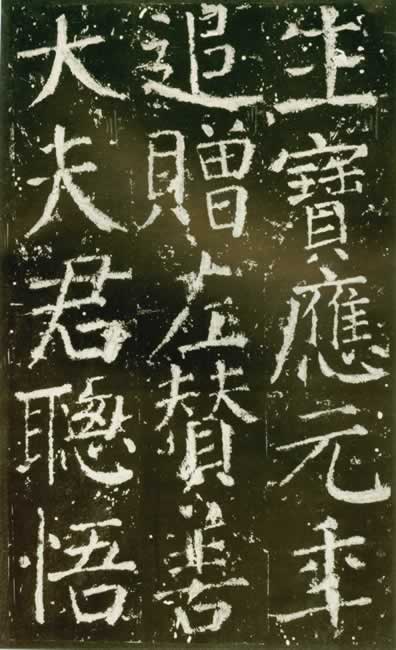 生寶應元年
追贈左贊善
大夫君聰悟